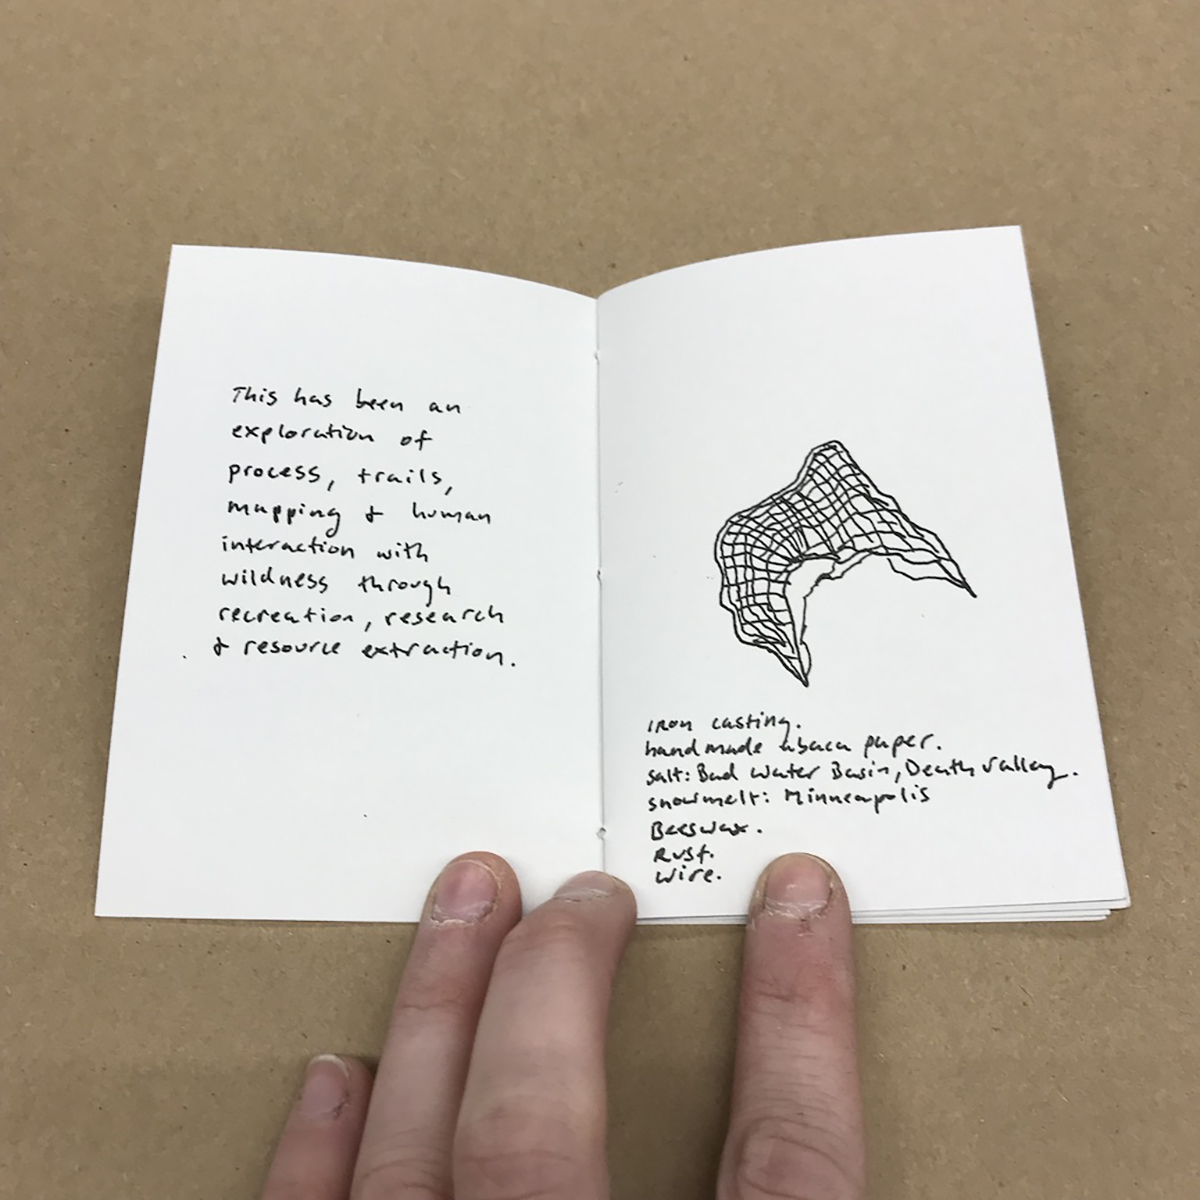 This has been an
exploration of
process, trails,
mapping & human
interaction with
wildness through
recreation, research
& resource extraction.
Iron casting.
handmade abaca paper.
salt: Bad Water Basin, Death Valley.
snowmelt: Minneapolis
Beeswax.
Rust.
wire.